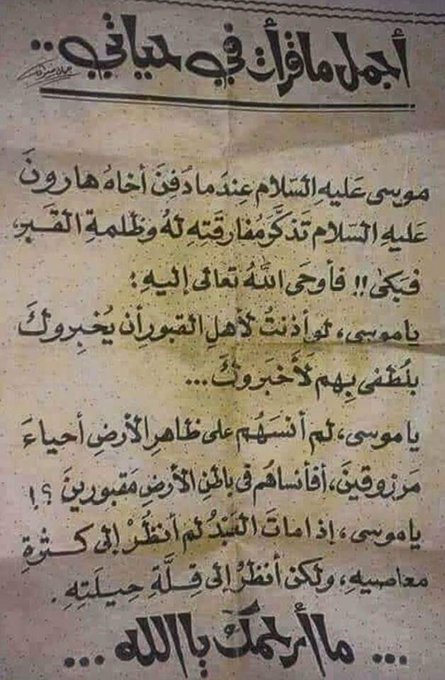 أجمل ما قرأت في حياتي ..
موسى عَليهِ السَلام عِندما دفنَ أخاهُ هارونَ
عليهِ السَلام تذكَّر مُفارقتهِ لهُ وظلمةِ القبرِ،
فبكىٰ!! فأوحَى اللهُ تعالى إليهِ:
يا موسى، لو أذنتُ لأهلِ القبور أن يُخبِروكَ
بلُطفي بهِم لَأخبَروكَ...
يا موسى، لم أنسَهُم على ظاهرِ الأرضِ أحياءَ
مَرزوقينَ، أفأنساهُم في باطنِ الأرضِ مَقبورينَ؟!
يا موسى، إذا ماتَ العَبدُ لم أنظُرْ إلى كثرةِ
معاصيهِ، ولكن أنظرُ إلى قِلَّةِ حِيلَتهِ.
... ما أرحمك يا الله ...